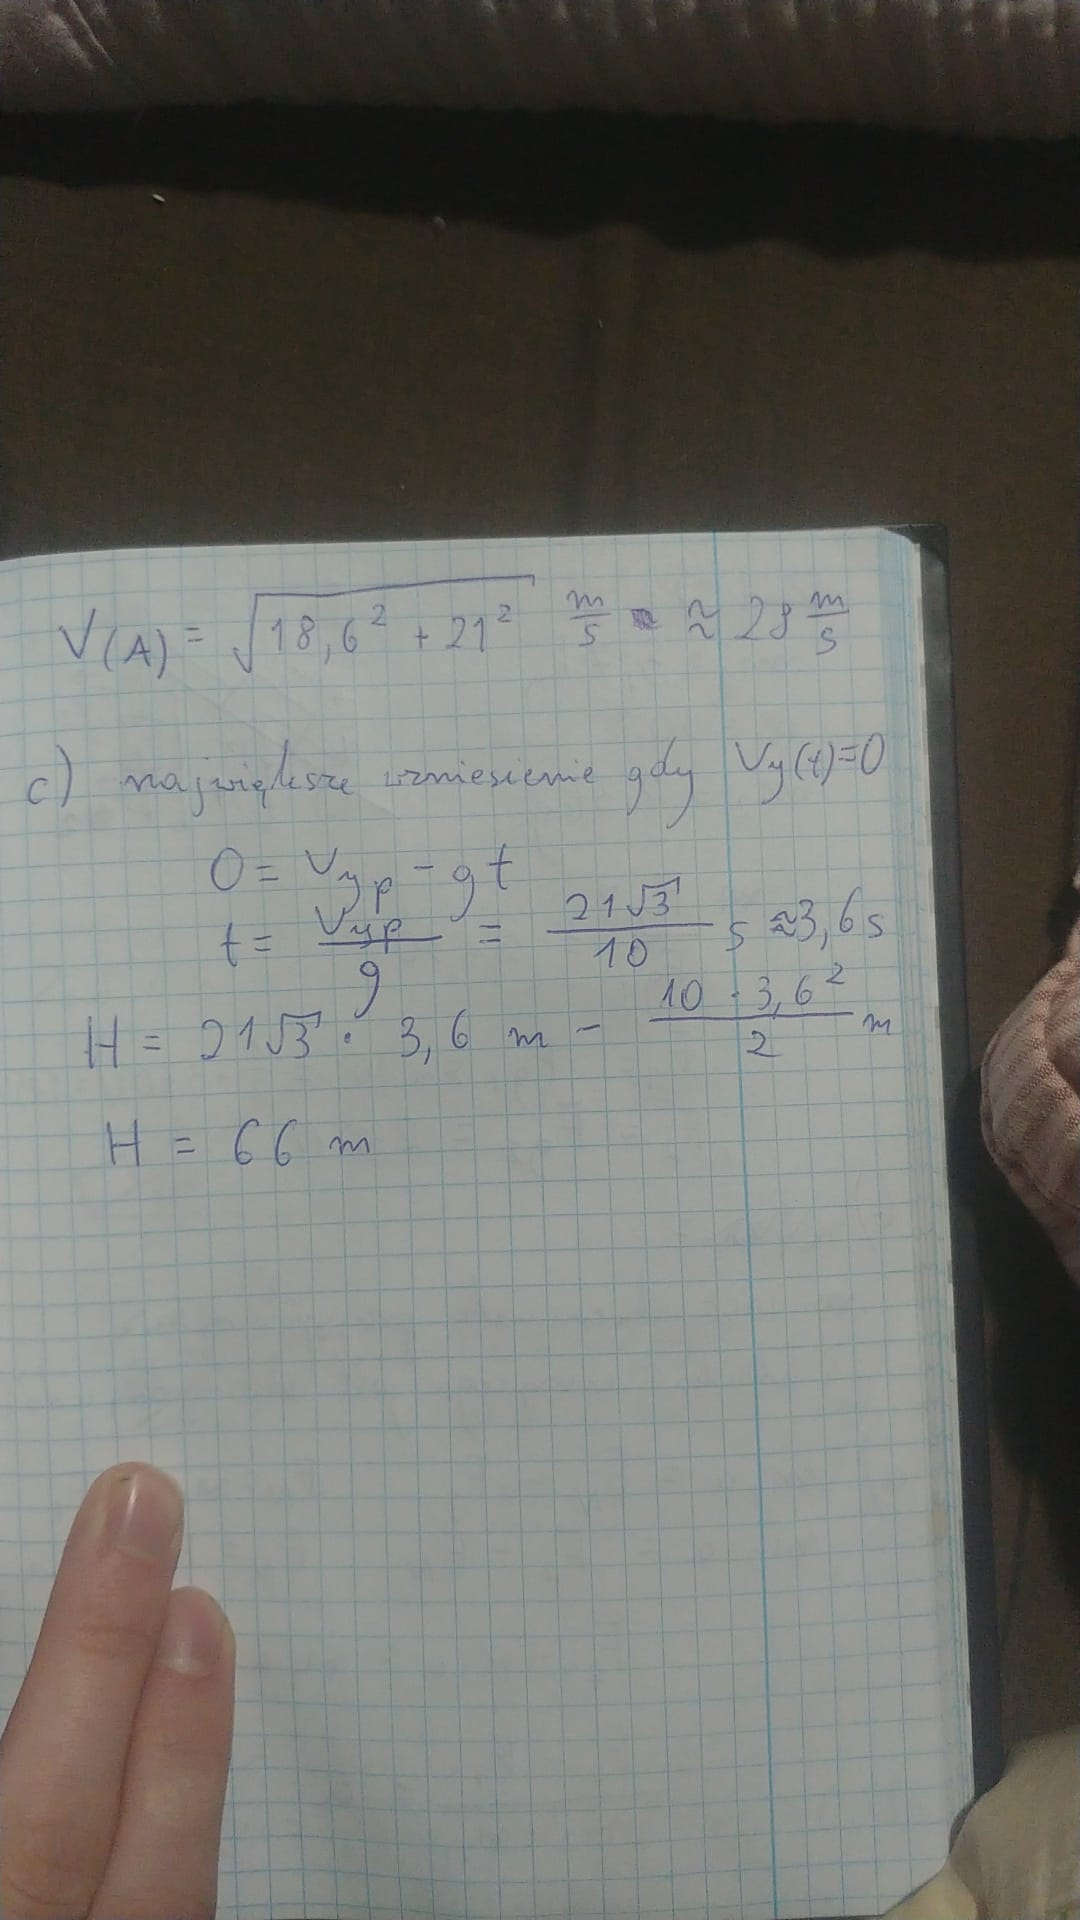 V(A) = √(18,6² + 21²) m/s ≈ 28 m/s
c) największe wzniesienie gdy Vy(t)=0
0 = Vyp - gt
t = Vyp/g = 21√3/10 s ≈ 3,6 s
H = 21√3 · 3,6 m - (10 · 3,6²)/2 m
H = 66 m